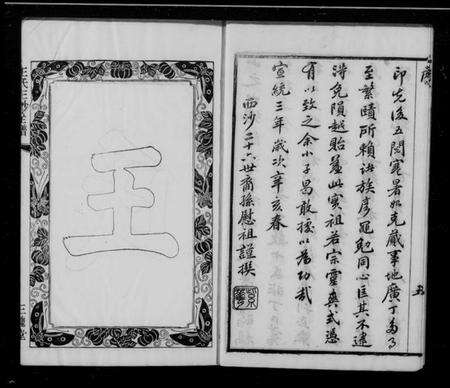 印先後五閱寒暑始克蕆事地廣丁多事
至繁賾所賴諸族彥黽勉同心匡其不逮
得免隕越貽羞此實祖若宗靈爽式憑
有以致之余小子曷敢援以為功哉
宣統三年歲次辛亥春
西沙二十六世裔孫慰祖謹撰
王